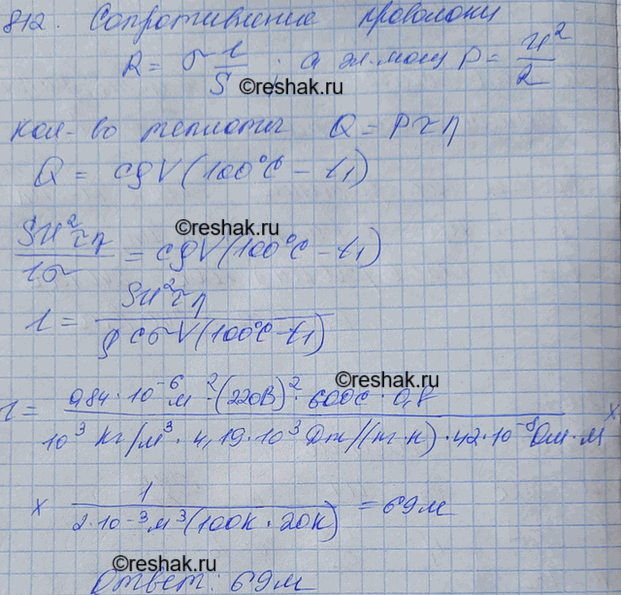 812. Сопротивление проволоки
R = σ l/S ; а эл. мощ P = U²/R
©reshak.ru
Кол-во теплоты Q = Pτη
Q = cρV(100°C - t₁)
©reshak.ru
SU²τη/lσ = cρV(100°C - t₁)
©reshak.ru
l = SU²τη/ρcσV(100°C - t₁)
©reshak.ru
l = 0,84·10⁻⁶м²·(220В)²·600с·0,8/10³ кг/м³·4,19·10³ Дж/(кг·К)·42·10⁻⁸Ом·м ×
× 1/2·10⁻³м³(100К·20К) = 69м
©reshak.ru
Ответ: 69м